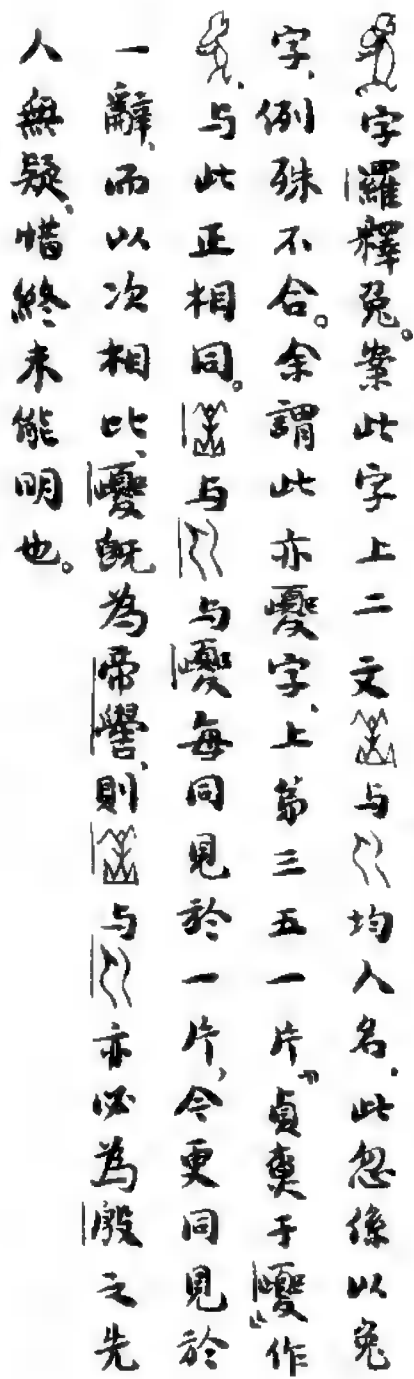 字羅釋兔。案此字上二文与均人名．此忽係以兔
字、例殊不合。余謂此亦夒字、上第三五一片「貞尞于夒」作
、与此正相同。与与夒每同見於一片，今更同見於
一辭、而以次相比、夒既為帝嚳、則与亦必為殷之先
人無疑、惜終未能明也。